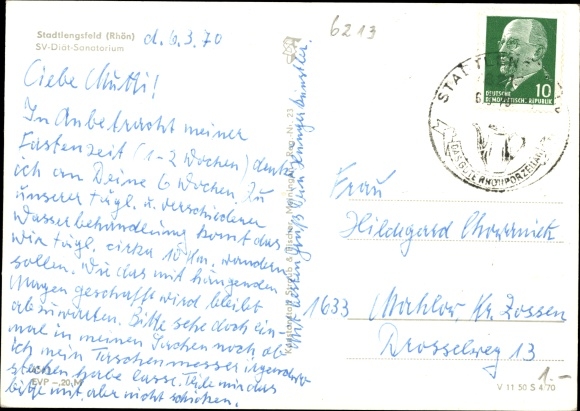 Stadtlengsfeld (Rhön)
SV-Diät-Sanatorium
d. 6.3.70
6213
Liebe Mutti!
In Anbetracht meiner
Fastenzeit (1-2 Wochen) denke
ich an Deine 6 Wochen. Zu
unserer tägl. u. verschiedener
Wasserbehandlung kommt das
wir tägl. cirka 10 km, wandern
sollen. Wie das mit hängenden
Magen geschafft wird, bleibt
abzuwarten. Bitte sehe doch ein-
mal in meinen Sachen noch ob
ich mein Taschenmesser irgendwo
stecken habe lasse. Teile mir das
bitte mit, aber nicht schicken.
Mit besten Gruß Dein Hungerkünstler.
EVP -,20 M
Reg. Nr. 23
STADTLENGSFELD
DEUTSCHE
DEMOKRATISCHE REPUBLIK
10
Frau
Hildegard
1633 Mahlow, Kr. Zossen
Drosselweg 13
1.-
V 11 50 S 4 70